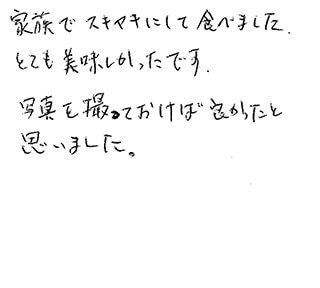 家族でスキヤキにして食べました.
とても美味しかったです.
写真を撮っておけば良かったと
思いました。